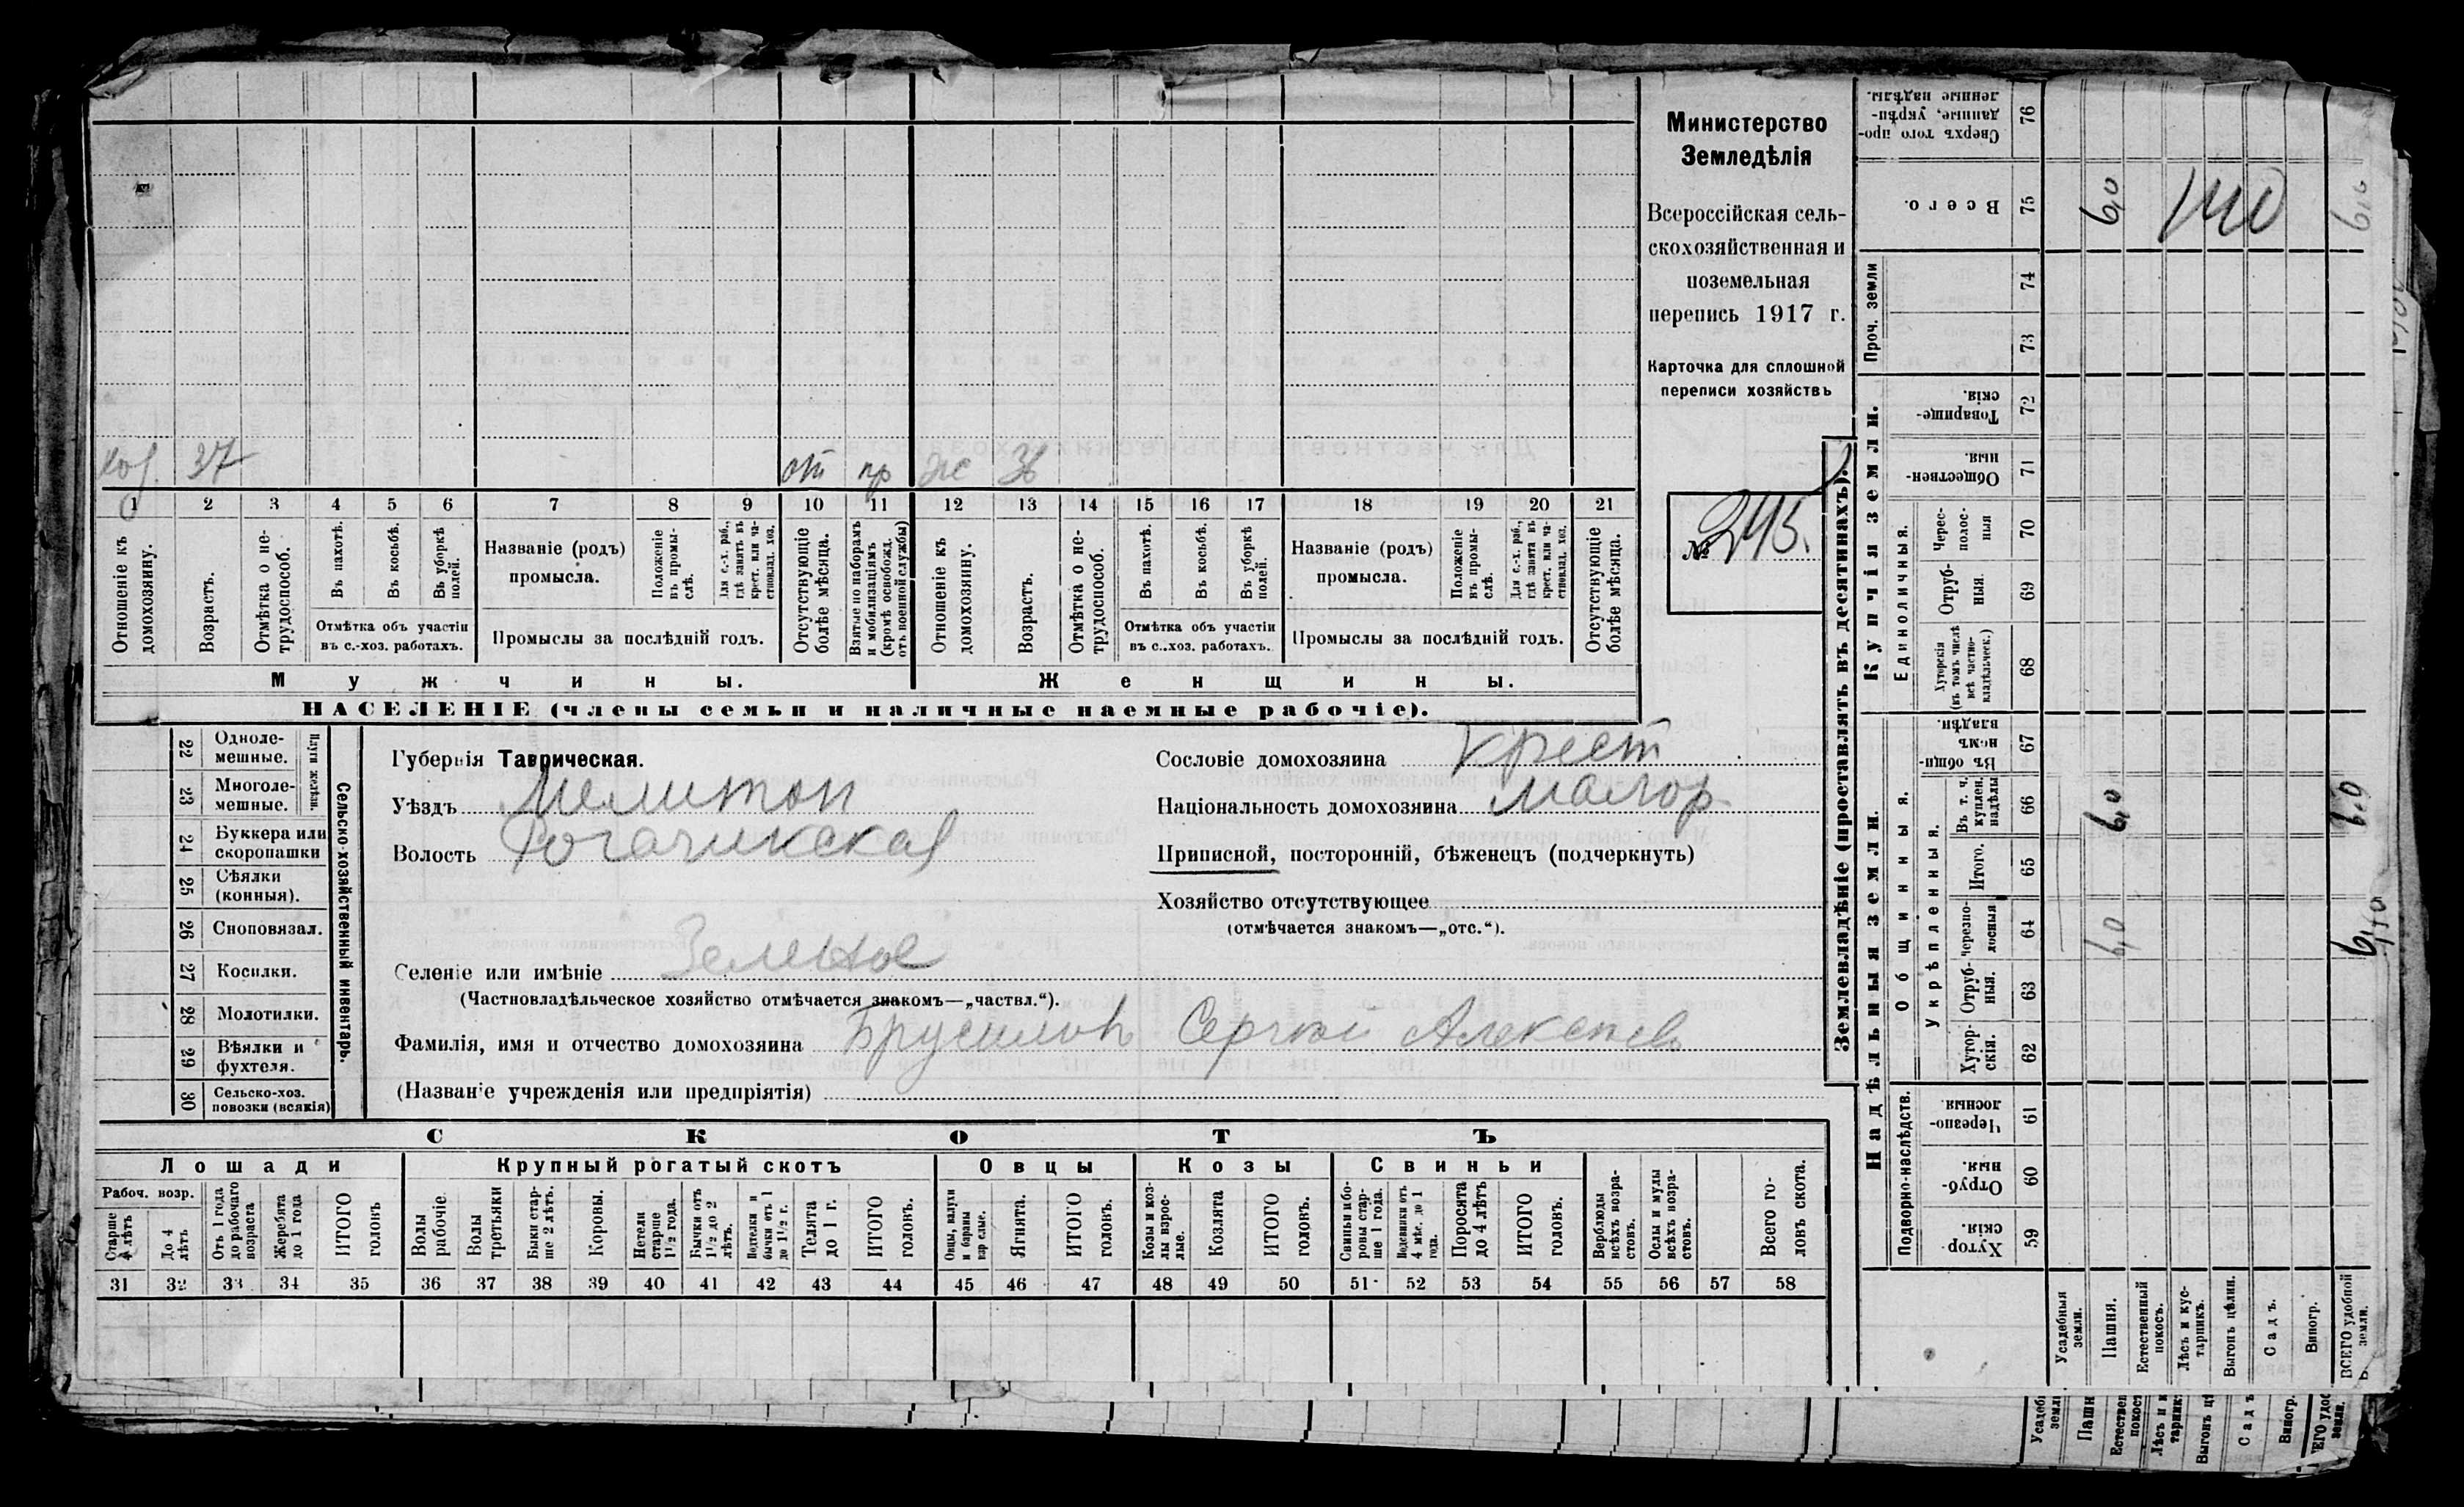 хоз. 37 от пр же 36
1 2 3 4 5 6 7 8 9 10 11 12 13 14 15 16 17 18 19 20 21
Отношеніе къ домохозяину.
Возрастъ.
Отмѣтка о не-трудоспособ.
Въ пахотѣ.
Въ косьбѣ.
Въ уборкѣ полей.
Отмѣтка объ участіи
въ с.-хоз. работахъ.
Названіе (родъ)
промысла.
Положеніе въ промы-слѣ.
Для с.-х. раб., гдѣ занятъ въ крест. или ча-стновлад. хоз.
Промыслы за послѣдній годъ.
Отсутствующіе болѣе мѣсяца.
Взятые по наборамъ и мобилизаціямъ (кромѣ освобожд. отъ военной службы)
Отношеніе къ домохозяину.
Возрастъ.
Отмѣтка о не-трудоспособ.
Въ пахотѣ.
Въ косьбѣ.
Въ уборкѣ полей.
Отмѣтка объ участіи
въ с.-хоз. работахъ.
Названіе (родъ)
промысла.
Положеніе въ промы-слѣ.
Для с.-х. раб., гдѣ занята въ крест. или ча-стновлад. хоз.
Промыслы за послѣдній годъ.
Отсутствующіе болѣе мѣсяца.
Мужчины.
Женщины.
НАСЕЛЕНІЕ (члены семьи и наличные наемные рабочіе).
Министерство
Земледѣлія
Всероссійская сель-
скохозяйственная и
поземельная
перепись 1917 г.
Карточка для сплошной
переписи хозяйствъ
№ 245.
22 Одноле-мешные.
23 Многоле-мешные.
Плуги желѣзн.
24 Буккера или скоропашки
25 Сѣялки (конныя).
26 Сноповязал.
27 Косилки.
28 Молотилки.
29 Вѣялки и фухтеля.
30 Сельско-хоз. повозки (всякія)
Сельско-хозяйственный инвентарь.
Губернія Таврическая.
Уѣздъ Мелитоп
Волость Рогачикская
Селеніе или имѣніе Зеленое
(Частновладѣльческое хозяйство отмѣчается знакомъ—„частвл.“).
Фамилія, имя и отчество домохозяина Брусиловъ Сергѣй Алексѣев
(Названіе учрежденія или предпріятія)
Сословіе домохозяина Крест
Національность домохозяина малор
Приписной, посторонній, бѣженецъ (подчеркнуть)
Хозяйство отсутствующее
(отмѣчается знакомъ—„отс.“).
СКОТЪ
Лошади
Рабоч. возр.
Старше 4 лѣтъ
До 4 лѣтъ
Отъ 1 года до рабочаго возраста
Жеребята до 1 года
ИТОГО головъ
Крупный рогатый скотъ
Волы рабочіе
Волы третьяки
Быки стар-ше 2 лѣтъ.
Коровы.
Нетели старше 1½ года.
Бычки отъ 1½ до 2 лѣтъ.
Водтелки и бычки отъ 1 до 1½ г.
Телята до 1 г.
ИТОГО головъ.
Овцы
Овцы, валухи и бараны взрослые.
Ягнята.
ИТОГО головъ.
Козы
Козы и коз-лы взрос-лые.
Козлята
ИТОГО головъ.
Свиньи
Свиньи и бо-ровы стар-ше 1 года.
Подсвинки отъ 4 мѣс. до 1 года.
Поросята до 4 лѣтъ
ИТОГО головъ.
Верблюды всѣхъ возра-стовъ.
Ослы и мулы всѣхъ возра-стовъ.
Всего го-ловъ скота.
31 32 33 34 35 36 37 38 39 40 41 42 43 44 45 46 47 48 49 50 51 52 53 54 55 56 57 58
Землевладѣніе (проставлять въ десятинахъ).
Купчія земли.
Надѣльныя земли.
Проч. земли
Единоличныя.
Общинныя.
Укрѣпленныя.
Подворно-наслѣдств.
76 Сверхъ того про-данные, укрѣп-ленные надѣлы.
75 Всего. 6,0 140 6,0
74
73
72 Товарище-скія.
71 Обществен-ныя.
70 Черес-полос-ныя
69 Отруб-ныя.
68 Хуторскія (въ томъ числѣ всѣ частно-владѣльческ.)
67 Въ общи-номъ владѣн.
66 Въ т. ч. куплен. надѣлы 6,0 6,0
65 Итого.
64 Черезпо-лосныя 6,0 6,0
63 Отруб-ныя.
62 Хутор-скія.
61 Черезпо-лосныя.
60 Отруб-ныя.
59 Хутор-скія.
Усадебныя земли.
Пашня.
Естественный покосъ.
Лѣсъ и кус-тарникъ.
Выгонъ цѣлин.
Садъ.
Виногр.
ВСЕГО удобной земли.